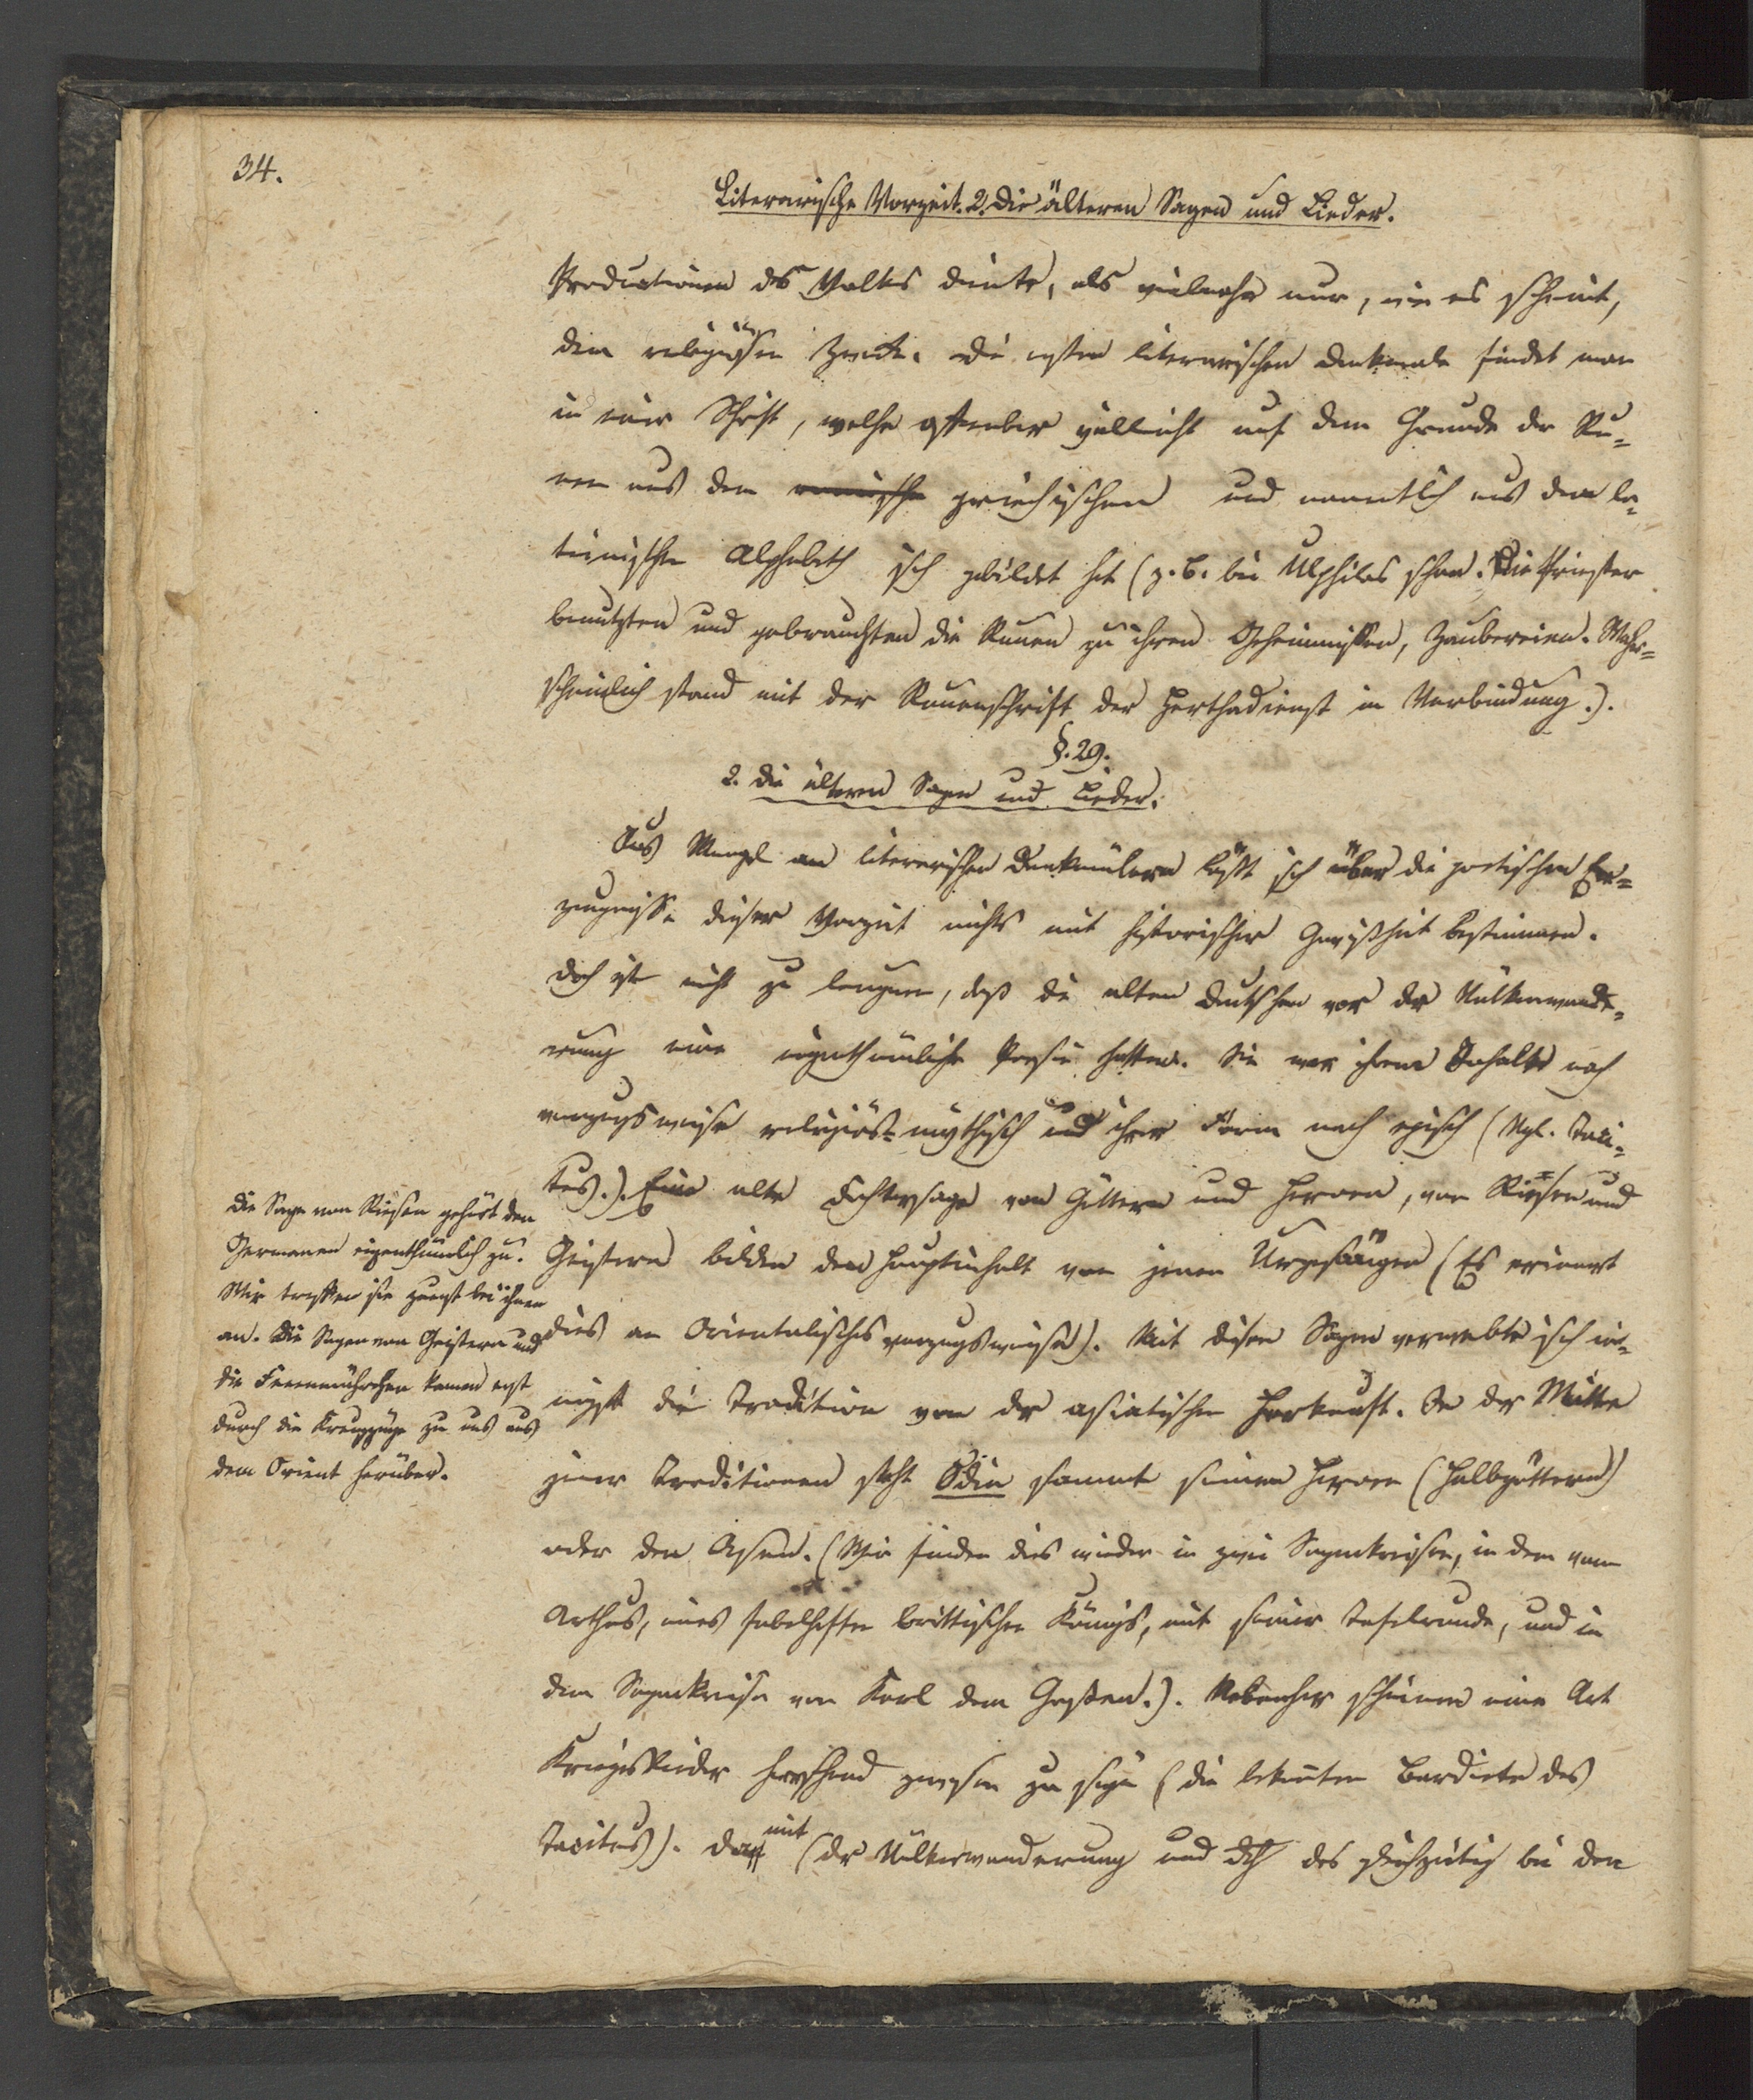 34.
Literarische Vorzeit. 2. Die älteren Sagen und Lieder.
Productionen des Volkes diente, als vielmehr nur, wie es scheint,
den religiösen Zwecken. Die ersten literarischen Denkmale findet man
in einer Schrift, welche offenbar vielleicht auf dem Grunde der Ru-
nen aus dem griechischen und namentlich aus dem la-
teinischen Alphabeth sich gebildet hat (z. B. bei Ulphilas schon. Die Priester
benutzten und gebrauchten die Runen zu ihren Geheimnissen, Zaubereien. Wahr-
scheinlich stand mit der Runenschrift der Herthadienst in Verbindung.).
§. 29.
2. Die älteren Sagen und Lieder.
Aus Mangel an literarischen Denkmälern läßt sich über die poetischen Er-
zeugnisse dieser Vorzeit nichts mit historischer Gewißheit bestimmen.
Doch ist nicht zu leugnen, daß die alten Deutschen vor der Völkerwande-
rung eine eigenthümliche Poesie hatten. Sie war ihrem Inhalte nach
vorzugsweise religiös-mythisch und ihrer Form nach episch (Vgl. Taci-
tus.). Eine alte Dichtersage von Göttern und Heroen, von Riesen und
Geistern bilden den Hauptinhalt von jenen Urgesängen (Es erinnert
dies an Orientalisches vorzugsweise). Mit diesen Sagen verwebte sich in-
nigst die Tradition von der asiatischen Herkunft. In der Mitte
jener Traditionen steht Odin sammt seinen Heroen (Halbgöttern)
oder den Asen. (Wir finden dies wieder in zwei Sagenkreisen, in dem vom
Arthus, eines fabelhaften brittischen Königs, mit seiner Tafelrunde, und in
dem Sagenkreise von Karl dem Großen.). Nebenher scheinen eine Art
Kriegslieder herrschend gewesen zu seyn (die bekannten Bardiete des
Tacitus). Daß mit (der Völkerwanderung und doch des gleichzeitig bei den
Die Sage von Riesen gehört den
Germanen eigenthümlich zu.
Wir treffen sie zuerst bei ihnen
an. Die Sagen von Geistern und
die Feenmährchen kamen erst
durch die Kreuzzüge zu uns aus
dem Orient herüber.